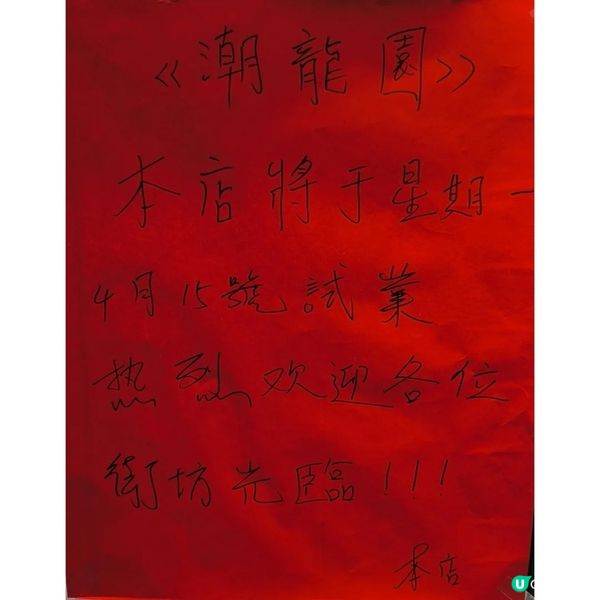 《潮龍園》
本店將于星期一
4月15號試業
热烈欢迎各位
街坊光臨!!!
本店
U